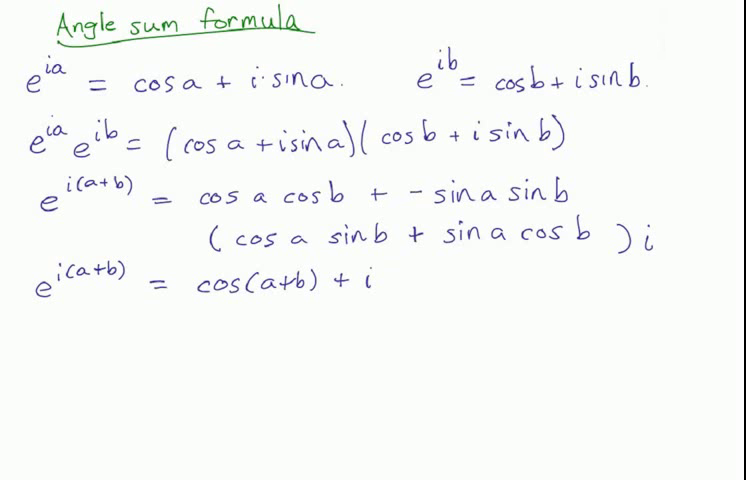 Angle sum formula
e^{ia} = cos a + i·sin a. e^{ib} = cos b + i sin b.
e^{ia} e^{ib} = (cos a + i sin a)(cos b + i sin b)
e^{i(a+b)} = cos a cos b + - sin a sin b
(cos a sin b + sin a cos b) i
e^{i(a+b)} = cos(a+b) + i